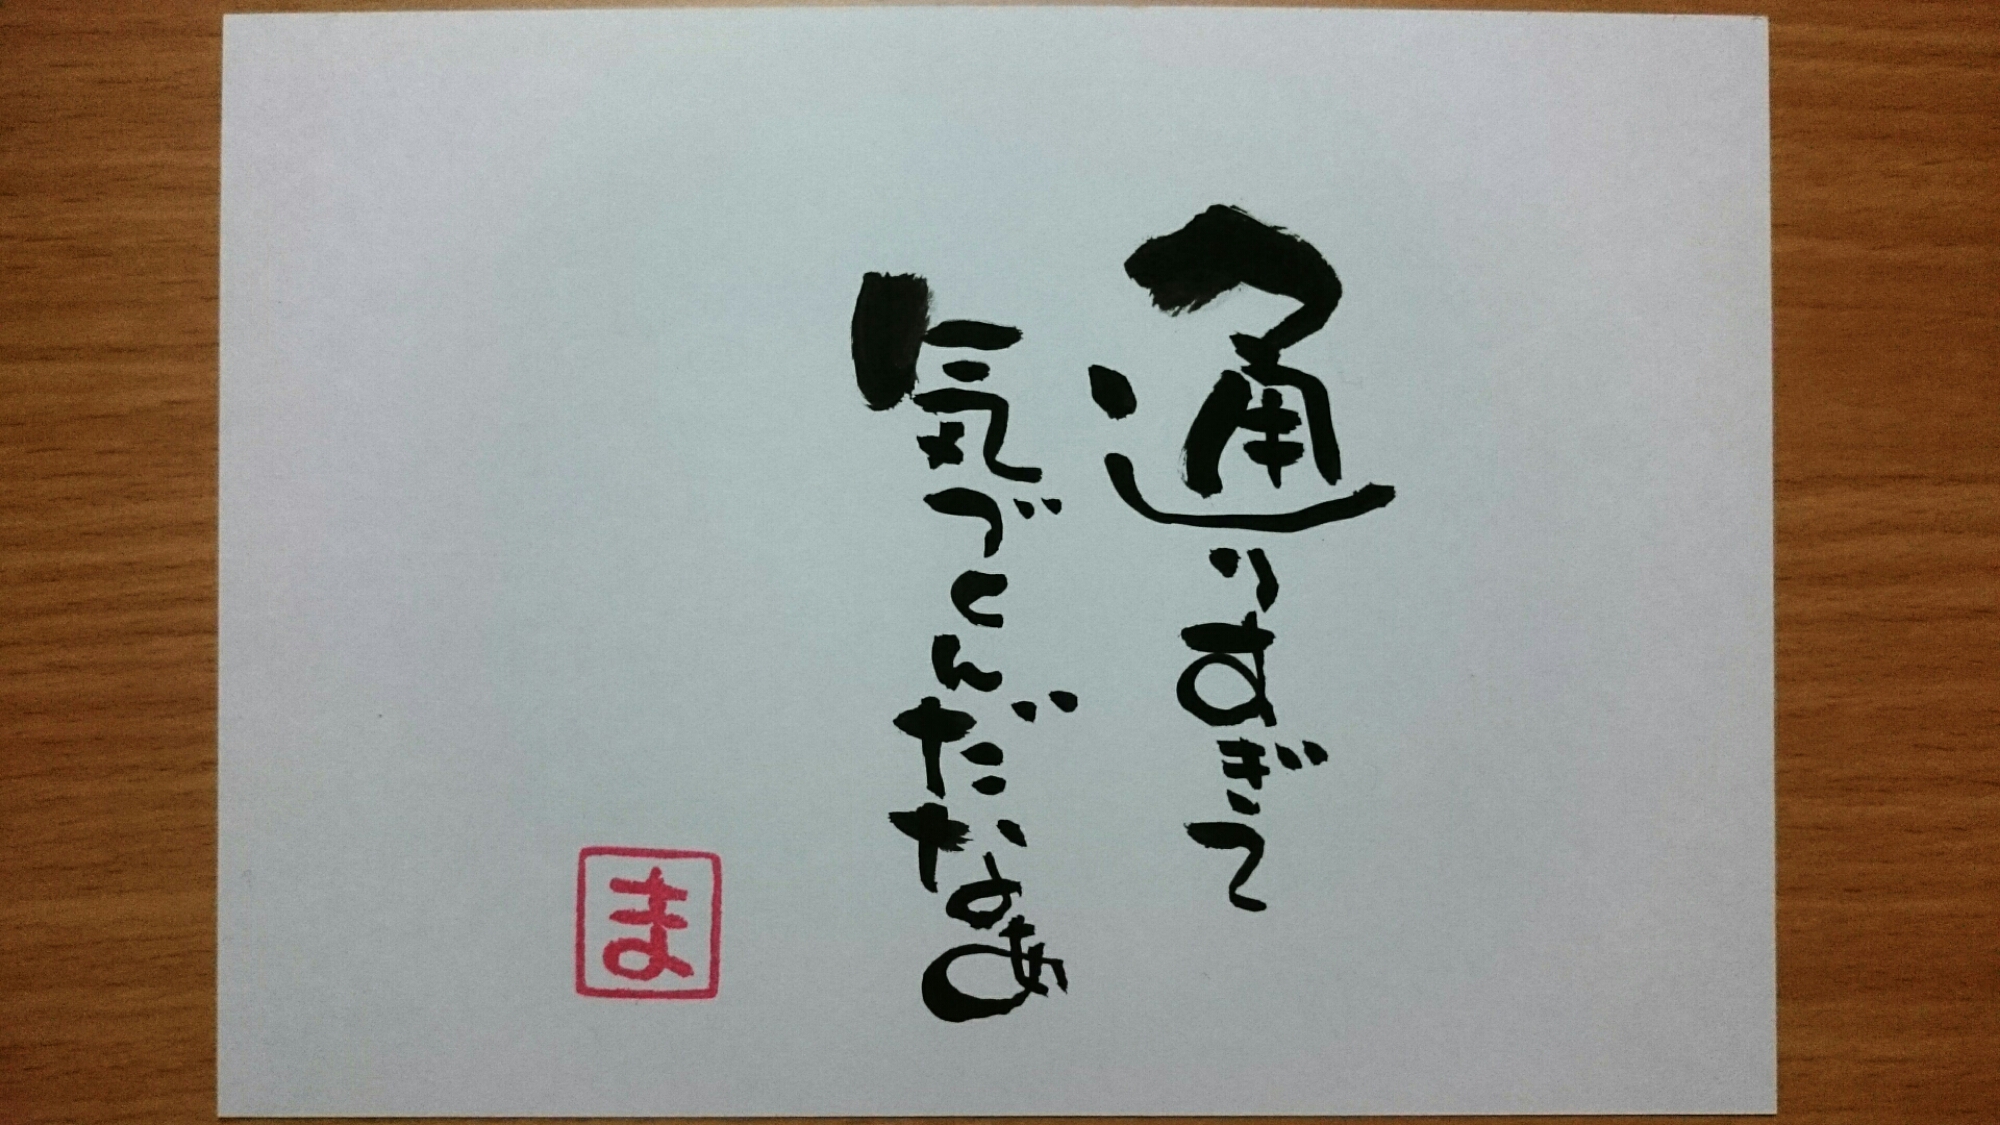 通りすぎて
気づくんだなあ
ま